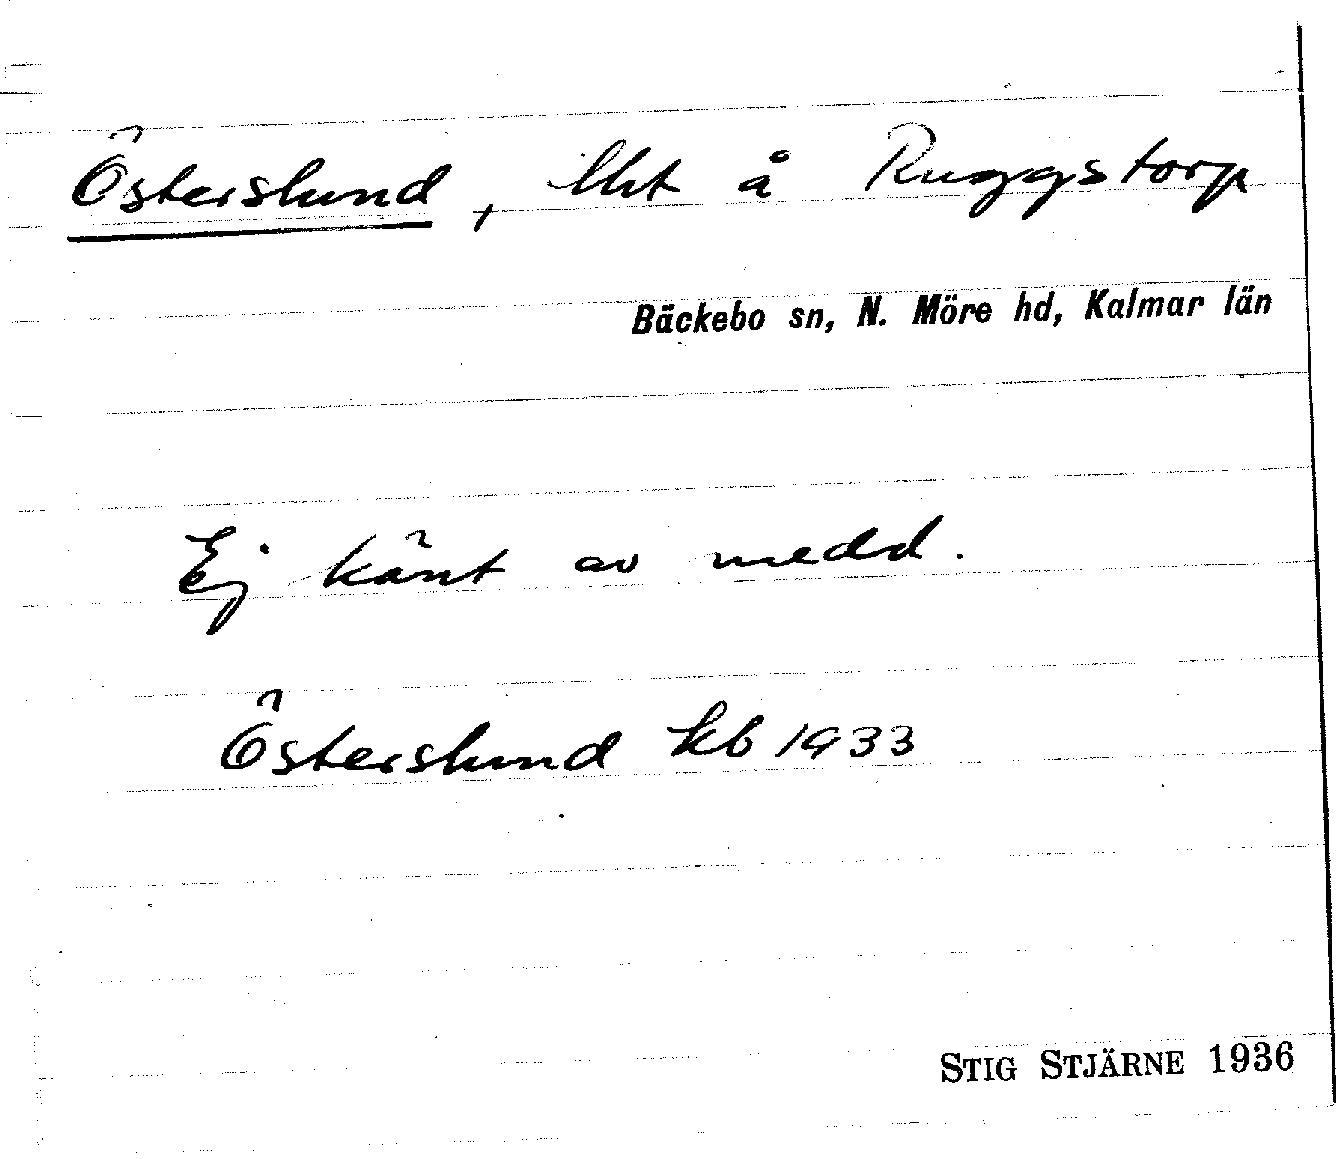 Österslund, lht å Ruggstorp
Bäckebo sn, N. Möre hd, Kalmar län
Ej känt av medd.
Österslund kb 1933
STIG STJÄRNE 1936